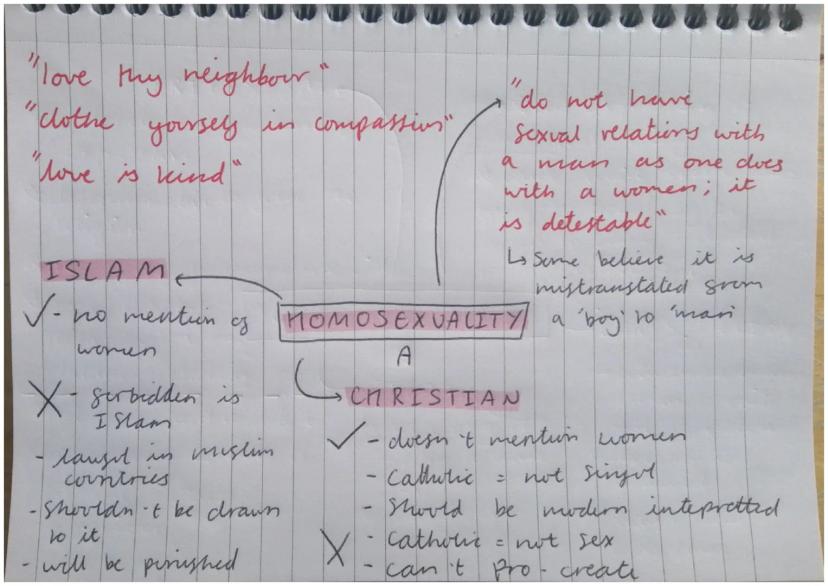 "love thy neighbour"
"clothe yourself in compassion"
"love is kind"
"do not have
sexual relations with
a man as one does
with a women; it
is detestable"
↳ Some believe it is
mistranslated from
a 'boy' to 'man'
HOMOSEXUALITY
A
ISLAM
✓ - no mention of
women
X - forbidden is
Islam
- in muslim
countries
- shouldn't be drawn
to it
- will be punished
CHRISTIAN
✓ - doesn't mention women
- Catholic = not sinful
- Should be modern intepretted
X - Catholic = not sex
- can't pro-create